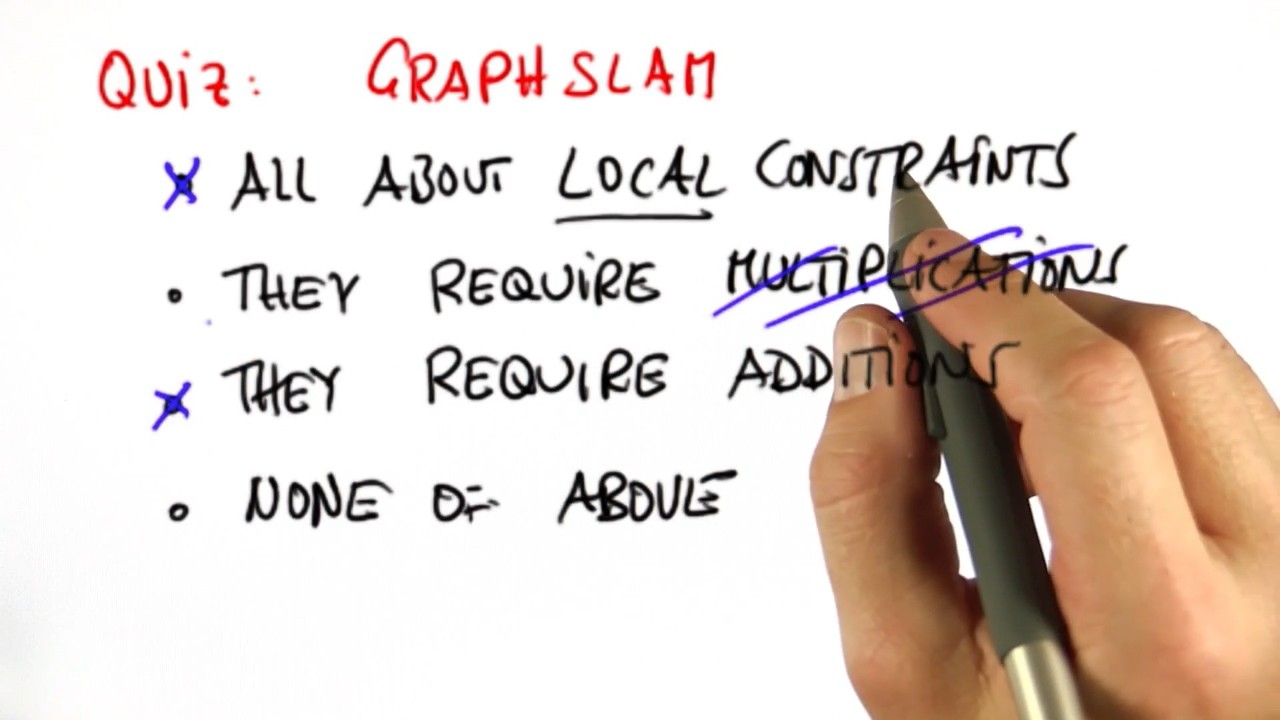 QUIZ: GRAPHSLAM
ALL ABOUT LOCAL CONSTRAINTS
• THEY REQUIRE MULTIPLICATIONS
THEY REQUIRE ADDITIONS
• NONE OF ABOVE